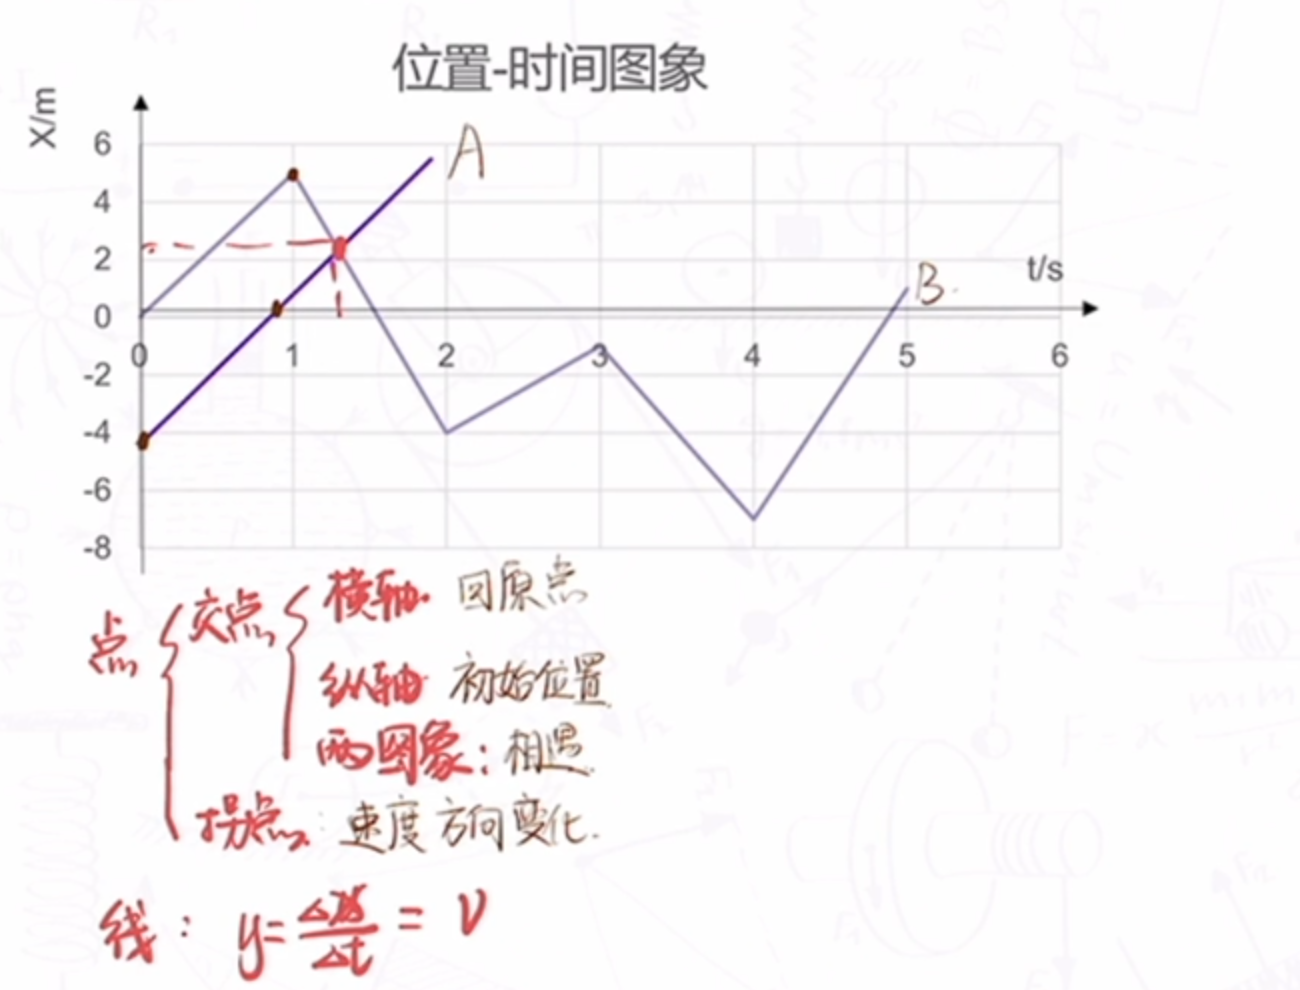 位置-时间图象
X/m
6
4
2
0
-2
-4
-6
-8
0 1 2 3 4 5 6
t/s
A
B.
点
交点
横轴. 回原点
纵轴 初始位置
两图象: 相遇
拐点: 速度方向变化.
线: y=Δx/Δt = v